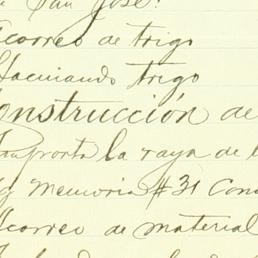 San José.
Acorreo de trigo
Hacinando trigo
Construcción de
la raya de l
Memoria #31 Con
Acorreo de material